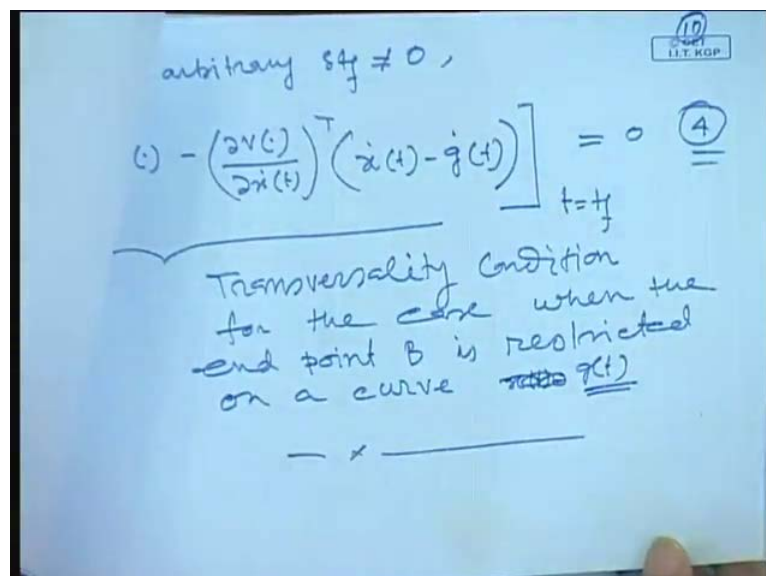 10
© CET
I.I.T. KGP
arbitrary δt_f ≠ 0,
(·) − (∂V(·)/∂ẋ(t))^T (ẋ(t) − ġ(t))]_{t=t_f} = 0 (4)
Transversality Condition
for the case when the
end point B is restricted
on a curve g(t)
— x —